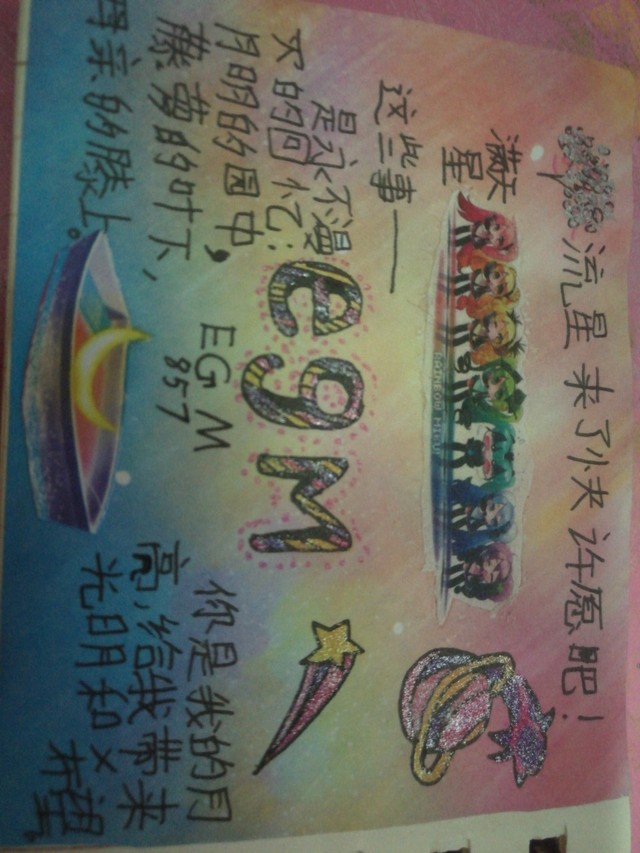 流星来了快许愿吧！
满天
星
RAINBOW MIKU
这些事——
是永不漫
灭的回忆：
月明的园中，
藤萝的叶下，
母亲的膝上。
egM
EGM
857
你是我的月
亮，给我带来
光明和×希望